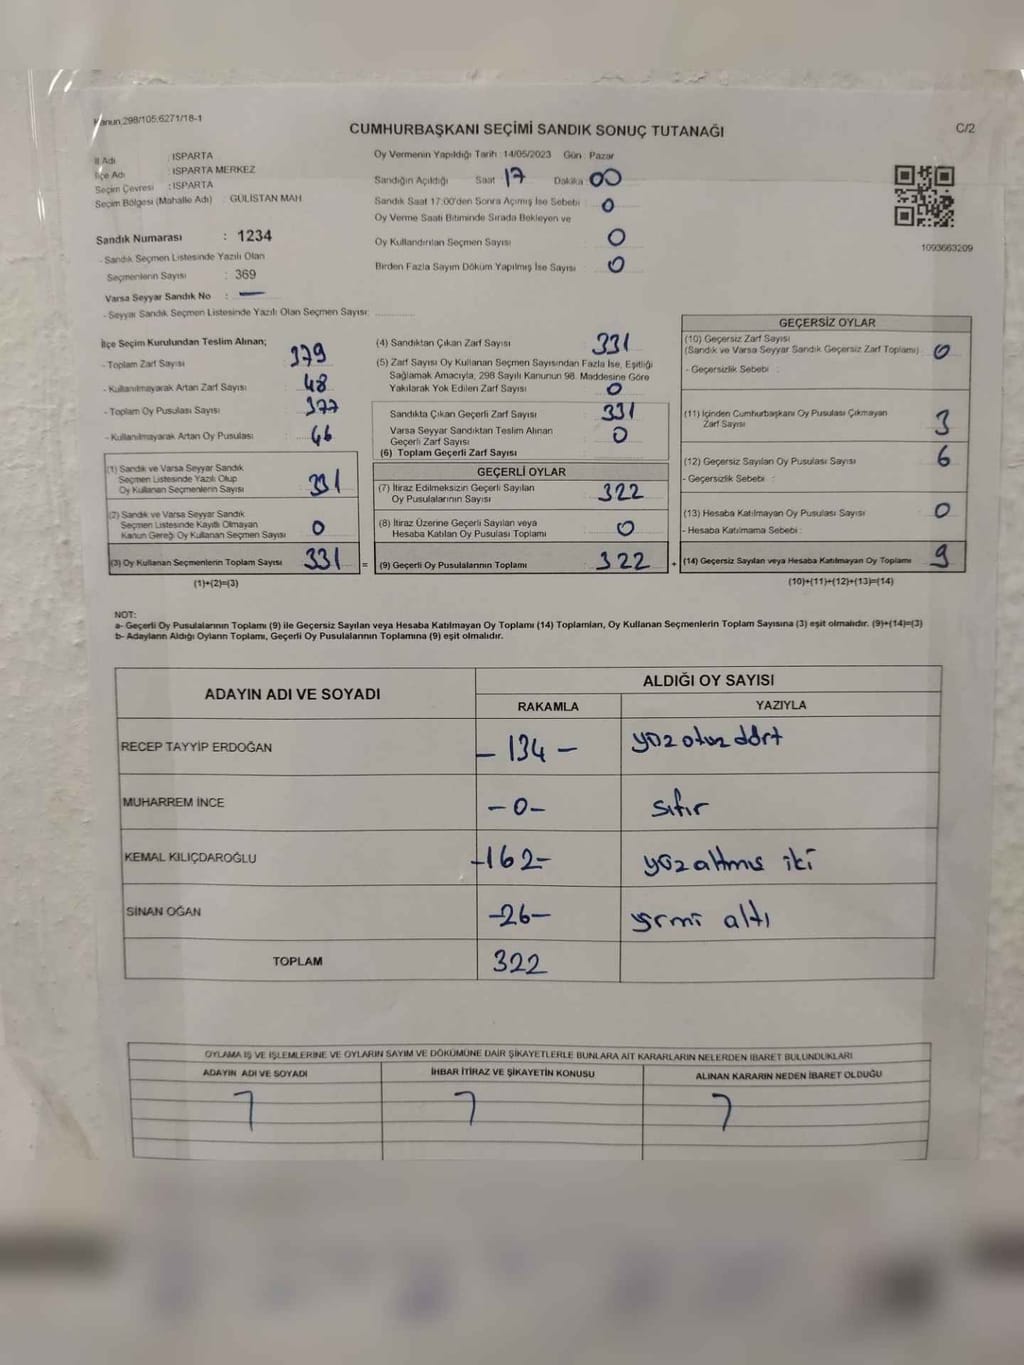 Kanun,298/105;6271/18-1
CUMHURBAŞKANI SEÇİMİ SANDIK SONUÇ TUTANAĞI
C/2
İl Adı : ISPARTA
İlçe Adı : ISPARTA MERKEZ
Seçim Çevresi : ISPARTA
Seçim Bölgesi (Mahalle Adı) : GÜLİSTAN MAH
Sandık Numarası : 1234
- Sandık Seçmen Listesinde Yazılı Olan
Seçmenlerin Sayısı : 369
Varsa Seyyar Sandık No : —
- Seyyar Sandık Seçmen Listesinde Yazılı Olan Seçmen Sayısı:
Oy Vermenin Yapıldığı Tarih :14/05/2023 Gün : Pazar
Sandığın Açıldığı Saat 17 Dakika 00
Sandık Saat 17:00'den Sonra Açımış İse Sebebi 0
Oy Verme Saati Bitiminde Sırada Bekleyen ve
Oy Kullandırılan Seçmen Sayısı 0
Birden Fazla Sayım Döküm Yapılmış İse Sayısı 0
1093663209
İlçe Seçim Kurulundan Teslim Alınan;
- Toplam Zarf Sayısı 379
- Kullanılmayarak Artan Zarf Sayısı 48
- Toplam Oy Pusulası Sayısı 377
- Kullanılmayarak Artan Oy Pusulası : 46
(1) Sandık ve Varsa Seyyar Sandık
Seçmen Listesinde Yazılı Olup
Oy Kullanan Seçmenlerin Sayısı 331
(2) Sandık ve Varsa Seyyar Sandık
Seçmen Listesinde Kayıtlı Olmayan
Kanun Gereği Oy Kullanan Seçmen Sayısı 0
(3) Oy Kullanan Seçmenlerin Toplam Sayısı 331 =
(1)+(2)=(3)
(4) Sandıktan Çıkan Zarf Sayısı 331
(5) Zarf Sayısı Oy Kullanan Seçmen Sayısından Fazla İse, Eşitliği
Sağlamak Amacıyla, 298 Sayılı Kanunun 98. Maddesine Göre
Yakılarak Yok Edilen Zarf Sayısı 0
Sandıkta Çıkan Geçerli Zarf Sayısı 331
Varsa Seyyar Sandıktan Teslim Alınan
Geçerli Zarf Sayısı 0
(6) Toplam Geçerli Zarf Sayısı
GEÇERLİ OYLAR
(7) İtiraz Edilmeksizin Geçerli Sayılan
Oy Pusulalarının Sayısı 322
(8) İtiraz Üzerine Geçerli Sayılan veya
Hesaba Katılan Oy Pusulası Toplamı 0
(9) Geçerli Oy Pusulalarının Toplamı 322 +
GEÇERSİZ OYLAR
(10) Geçersiz Zarf Sayısı
(Sandık ve Varsa Seyyar Sandık Geçersiz Zarf Toplamı) 0
- Geçersizlik Sebebi :
(11) İçinden Cumhurbaşkanı Oy Pusulası Çıkmayan
Zarf Sayısı 3
(12) Geçersiz Sayılan Oy Pusulası Sayısı 6
- Geçersizlik Sebebi :
(13) Hesaba Katılmayan Oy Pusulası Sayısı 0
- Hesaba Katılmama Sebebi :
(14) Geçersiz Sayılan veya Hesaba Katılmayan Oy Toplamı 9
(10)+(11)+(12)+(13)=(14)
NOT:
a- Geçerli Oy Pusulalarının Toplamı (9) ile Geçersiz Sayılan veya Hesaba Katılmayan Oy Toplamı (14) Toplamları, Oy Kullanan Seçmenlerin Toplam Sayısına (3) eşit olmalıdır. (9)+(14)=(3)
b- Adayların Aldığı Oyların Toplamı, Geçerli Oy Pusulalarının Toplamına (9) eşit olmalıdır.
ADAYIN ADI VE SOYADI
ALDIĞI OY SAYISI
RAKAMLA YAZIYLA
RECEP TAYYİP ERDOĞAN - 134 - yüz otuz dört
MUHARREM İNCE - 0 - sıfır
KEMAL KILIÇDAROĞLU -162- yüz altmış iki
SİNAN OĞAN -26- yirmi altı
TOPLAM 322
OYLAMA İŞ VE İŞLEMLERİNE VE OYLARIN SAYIM VE DÖKÜMÜNE DAİR ŞİKAYETLERLE BUNLARA AİT KARARLARIN NELERDEN İBARET BULUNDUKLARI
ADAYIN ADI VE SOYADI İHBAR İTİRAZ VE ŞİKAYETİN KONUSU ALINAN KARARIN NEDEN İBARET OLDUĞU